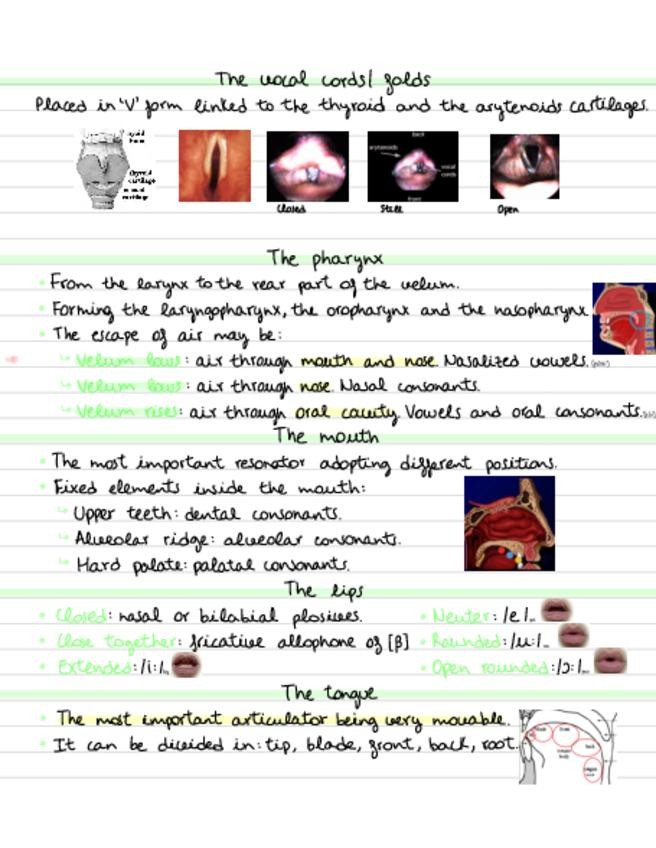 The vocal cords/ folds
Placed in 'V' form linked to the thyroid and the arytenoids cartilages.
back
arytenoids
vocal cords
front
Closed
Still
Open
The pharynx
From the larynx to the rear part of the velum.
Forming the laryngopharynx, the oropharynx and the nasopharynx
The escape of air may be:
Velum lows: air through mouth and nose. Nasalized vowels.
Velum lows: air through nose. Nasal consonants.
Velum rises: air through oral cavity. Vowels and oral consonants.
The mouth
The most important resonator adopting different positions.
Fixed elements inside the mouth:
Upper teeth: dental consonants.
Alveolar ridge: alveolar consonants.
Hard palate: palatal consonants.
The lips
Closed: nasal or bilabial plosives.
Close together: fricative allophone of [β]
Extended: /i:/
Neuter: /e/
Rounded: /u:/
Open rounded: /ɔ:/
The tongue
The most important articulator being very movable.
It can be divided in: tip, blade, front, back, root.